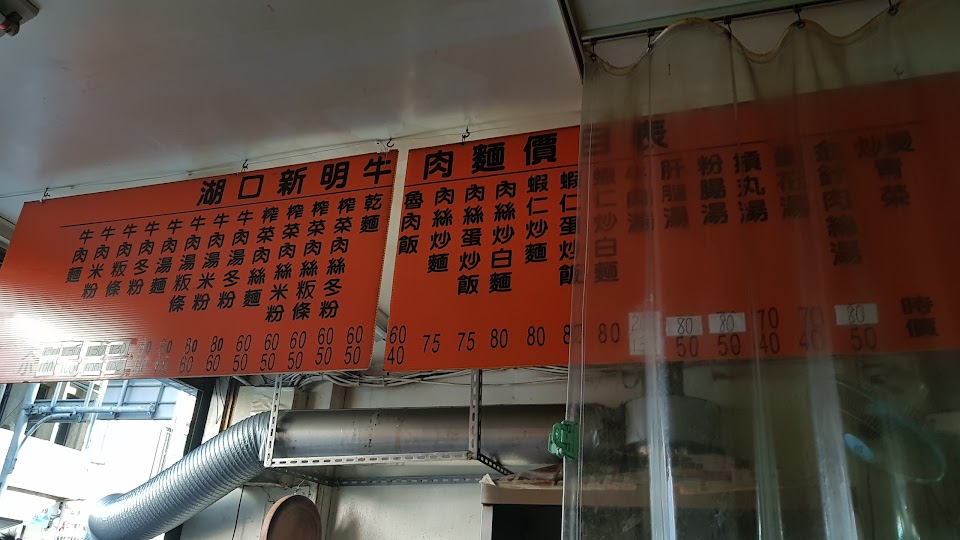 湖口新明牛肉麵價目表
牛肉麵
牛肉米粉
牛肉粄條
牛肉冬粉
牛肉湯麵
牛肉湯粄條
牛肉湯米粉 80 60
牛肉湯冬粉 80 60
榨菜肉絲麵 60 50
榨菜肉絲米粉 60 50
榨菜肉絲粄條 60 50
榨菜肉絲冬粉 60 50
乾麵
魯肉飯 60 40
肉絲炒麵 75
肉絲蛋炒飯 75
肉絲炒白麵 80
蝦仁炒麵 80
蝦仁蛋炒飯 80
蝦仁炒白麵 80
湯
湯 80 50
粉腸湯 80 50
摃丸湯 70 40
花湯 70 40
金針肉絲湯 80 50
炒燙青菜 時價